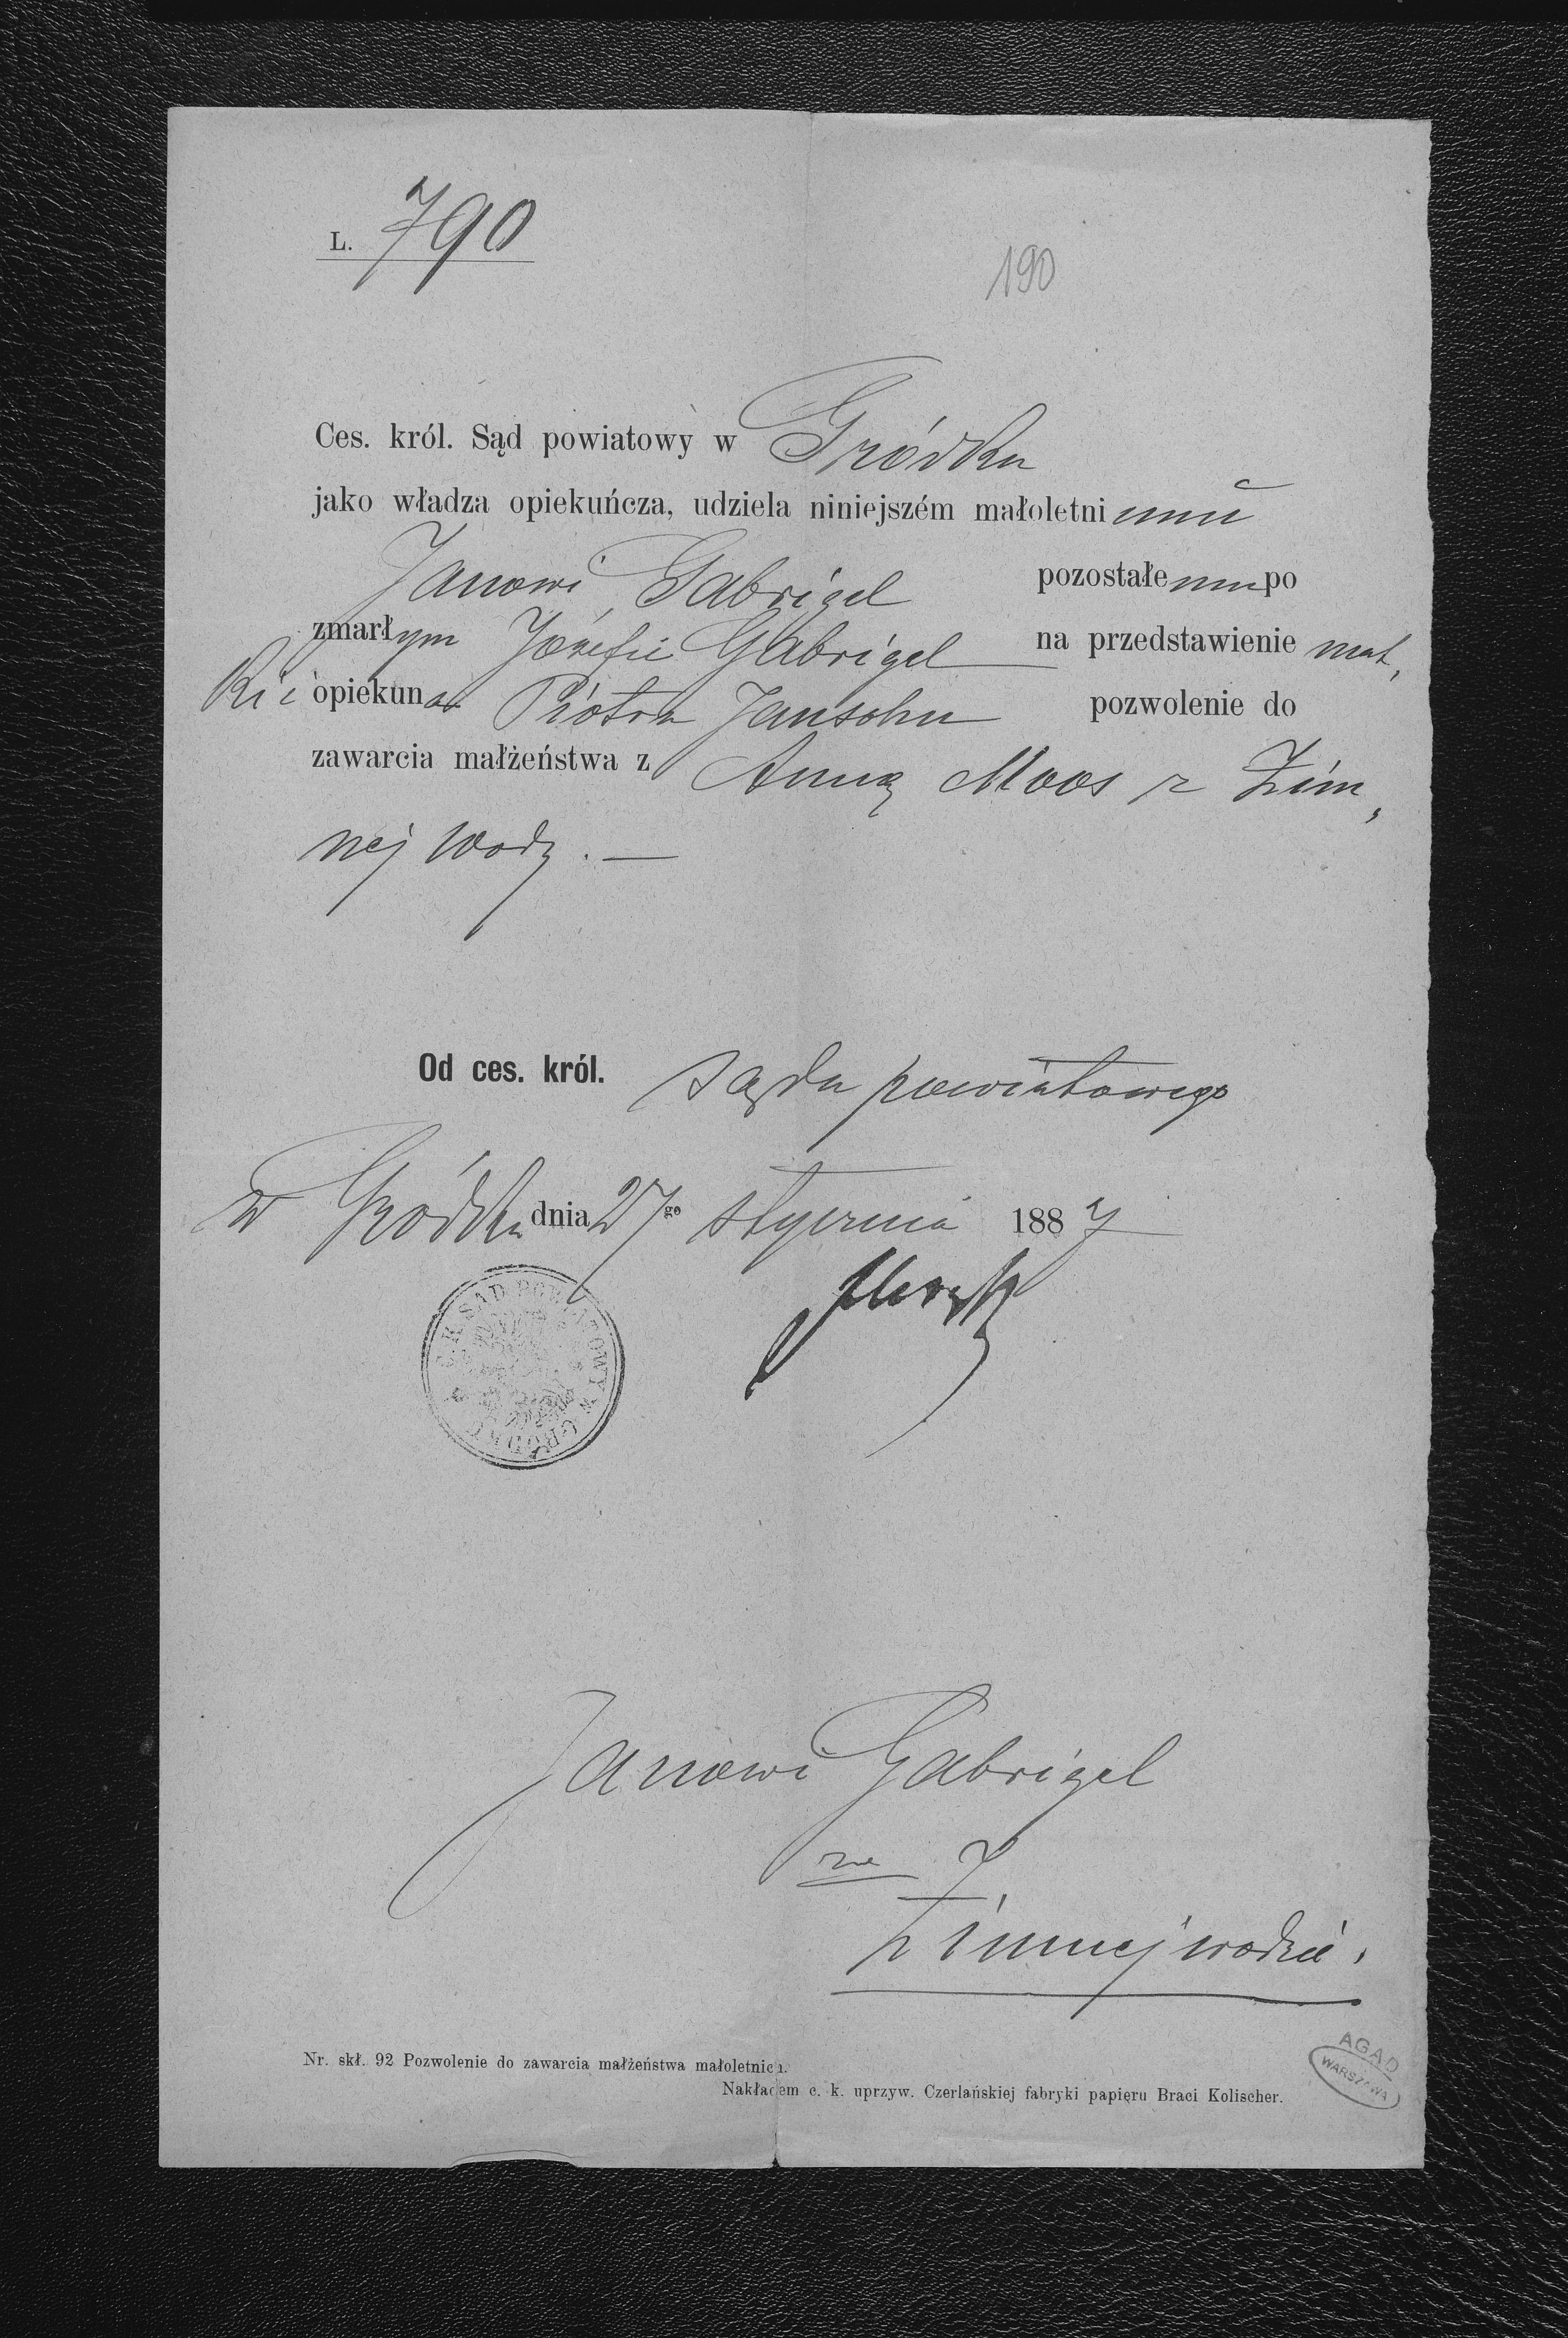 L. 790
190
Ces. król. Sąd powiatowy w Gródku
jako władza opiekuńcza, udziela niniejszém małoletniemu
Janowi Gabrigel pozostałemu po
zmarłym Józefie Gabrigel na przedstawienie mat,
ki i opiekuna Piotra Jansohn pozwolenie do
zawarcia małżeństwa z Anną Moos z Zim,
nej Wody. —
Od ces. król. sądu powiatowego
w Gródku dnia 27go stycznia 1887
C. K. SĄD POWIATOWY W GRÓDKU
Janowi Gabrigel
we
Zimnejwodzie.
Nr. skł. 92 Pozwolenie do zawarcia małżeństwa małoletnich.
Nakładem c. k. uprzyw. Czerlańskiej fabryki papięru Braci Kolischer.
AGAD
WARSZAWA